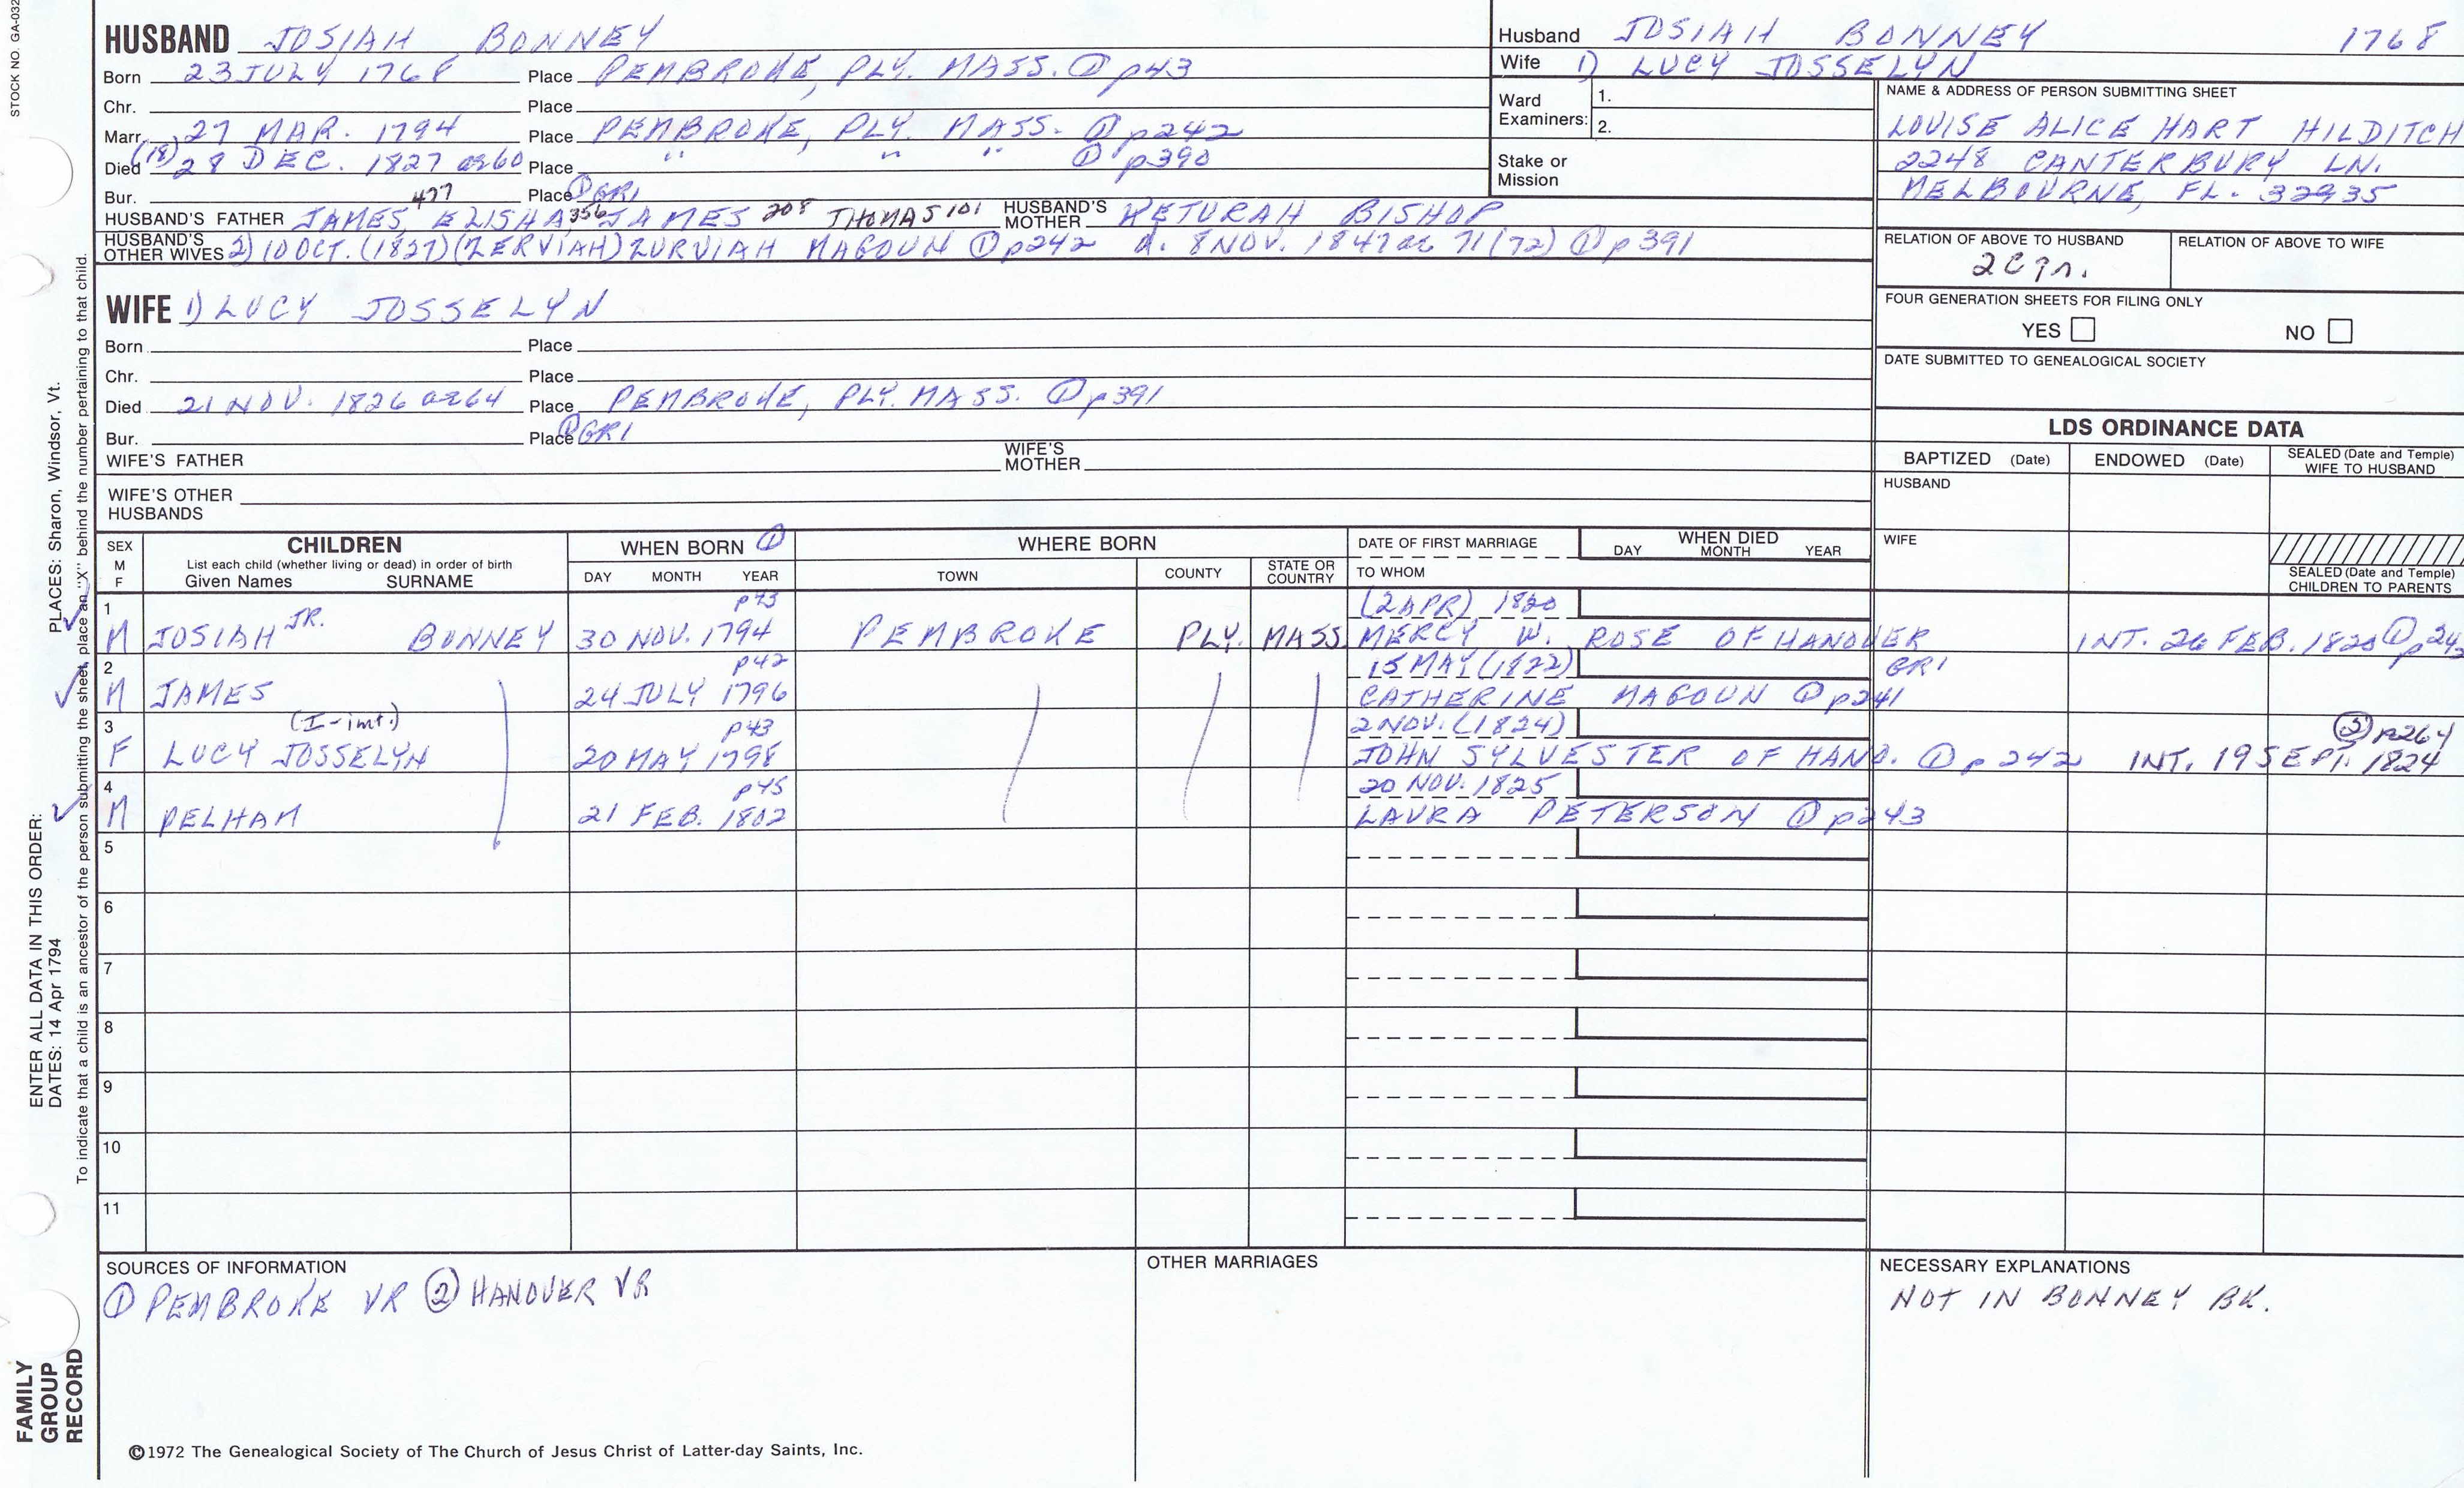 STOCK NO. GA-032
HUSBAND JOSIAH BONNEY
Born 23 JULY 1768 Place PEMBROKE, PLY. MASS. ① p43
Chr. Place
Marr. 27 MAR. 1794 Place PEMBROKE, PLY. MASS. ① p242
Died (18) 28 DEC. 1827 ae 60 Place " " " ① p390
Bur. Place ① GR1
HUSBAND'S FATHER JAMES, 477 ELISHA, 356 JAMES 208 THOMAS 101 HUSBAND'S MOTHER KETURAH BISHOP
HUSBAND'S OTHER WIVES 2) 10 OCT. (1827) (ZERVIAH) ZURVIAH MAGOUN ① p242 d. 8 NOV. 1847 ae 71 (72) ① p391
WIFE 1) LUCY JOSSELYN
Born Place
Chr. Place
Died 21 NOV. 1826 ae 64 Place PEMBROKE, PLY. MASS. ① p391
Bur. Place ① GR1
WIFE'S FATHER WIFE'S MOTHER
WIFE'S OTHER HUSBANDS
Husband JOSIAH BONNEY 1768
Wife 1) LUCY JOSSELYN
Ward Examiners: 1.
2.
Stake or Mission
NAME & ADDRESS OF PERSON SUBMITTING SHEET
LOUISE ALICE HART HILDITCH
2248 CANTERBURY LN.
MELBOURNE, FL. 32935
RELATION OF ABOVE TO HUSBAND RELATION OF ABOVE TO WIFE
FOUR GENERATION SHEETS FOR FILING ONLY
YES NO
DATE SUBMITTED TO GENEALOGICAL SOCIETY
LDS ORDINANCE DATA
BAPTIZED (Date) ENDOWED (Date) SEALED (Date and Temple) WIFE TO HUSBAND
HUSBAND
WIFE
SEALED (Date and Temple) CHILDREN TO PARENTS
SEX M F CHILDREN WHEN BORN ① WHERE BORN DATE OF FIRST MARRIAGE WHEN DIED
List each child (whether living or dead) in order of birth
Given Names SURNAME DAY MONTH YEAR TOWN COUNTY STATE OR COUNTRY TO WHOM DAY MONTH YEAR
1 p43 (2 APR) 1820
M JOSIAH JR. BONNEY 30 NOV. 1794 PEMBROKE PLY. MASS. MERCY W. ROSE OF HANOVER INT. 26 FEB. 1820 ① p242
2 p42 15 MAY (1822) GR1
M JAMES 24 JULY 1796 CATHERINE MAGOUN ① p241
3 (I-int.) p43 2 NOV. (1824) ② p264
F LUCY JOSSELYN 20 MAY 1798 JOHN SYLVESTER OF HANO. ① p242 INT. 19 SEPT. 1824
4 p45 20 NOV. 1825
M PELHAM 21 FEB. 1802 LAURA PETERSON ① p243
5
6
7
8
9
10
11
SOURCES OF INFORMATION
① PEMBROKE VR ② HANOVER VR
OTHER MARRIAGES
NECESSARY EXPLANATIONS
NOT IN BONNEY BK.
©1972 The Genealogical Society of The Church of Jesus Christ of Latter-day Saints, Inc.
FAMILY GROUP RECORD
ENTER ALL DATA IN THIS ORDER:
DATES: 14 Apr 1794 PLACES: Sharon, Windsor, Vt.
To indicate that a child is an ancestor of the person submitting the sheet, place an "X" behind the number pertaining to that child.